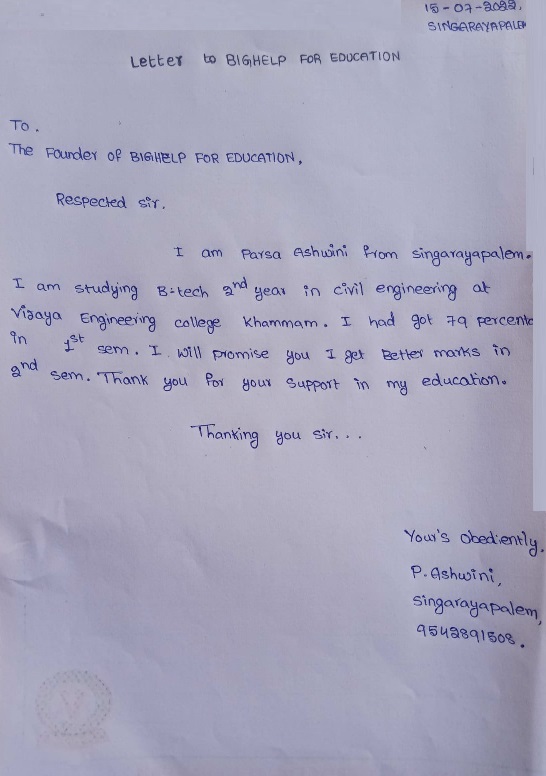 15-07-2022,
SINGARAYAPALEM
Letter to BIGHELP FOR EDUCATION
To.
The Founder of BIGHELP FOR EDUCATION,
Respected sir.
I am Parsa Ashwini from singarayapalem.
I am studying B-tech 2nd year in civil engineering at
Vijaya Engineering college Khammam. I had got 79 percente
in 1st sem. I will promise you I get Better marks in
2nd sem. Thank you for your support in my education.
Thanking you sir...
Your's obediently,
P. Ashwini,
singarayapalem,
9542891508.